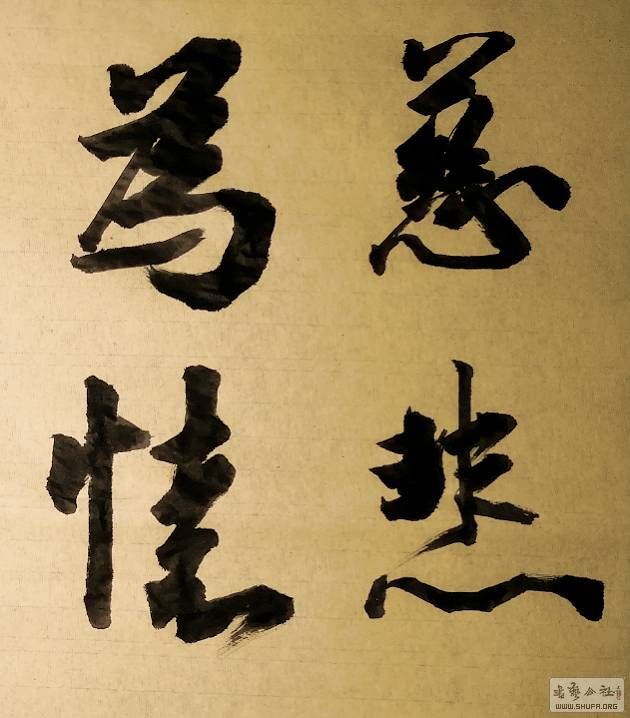 慈悲
為懷
書藝公社
WWW.SHUFA.ORG